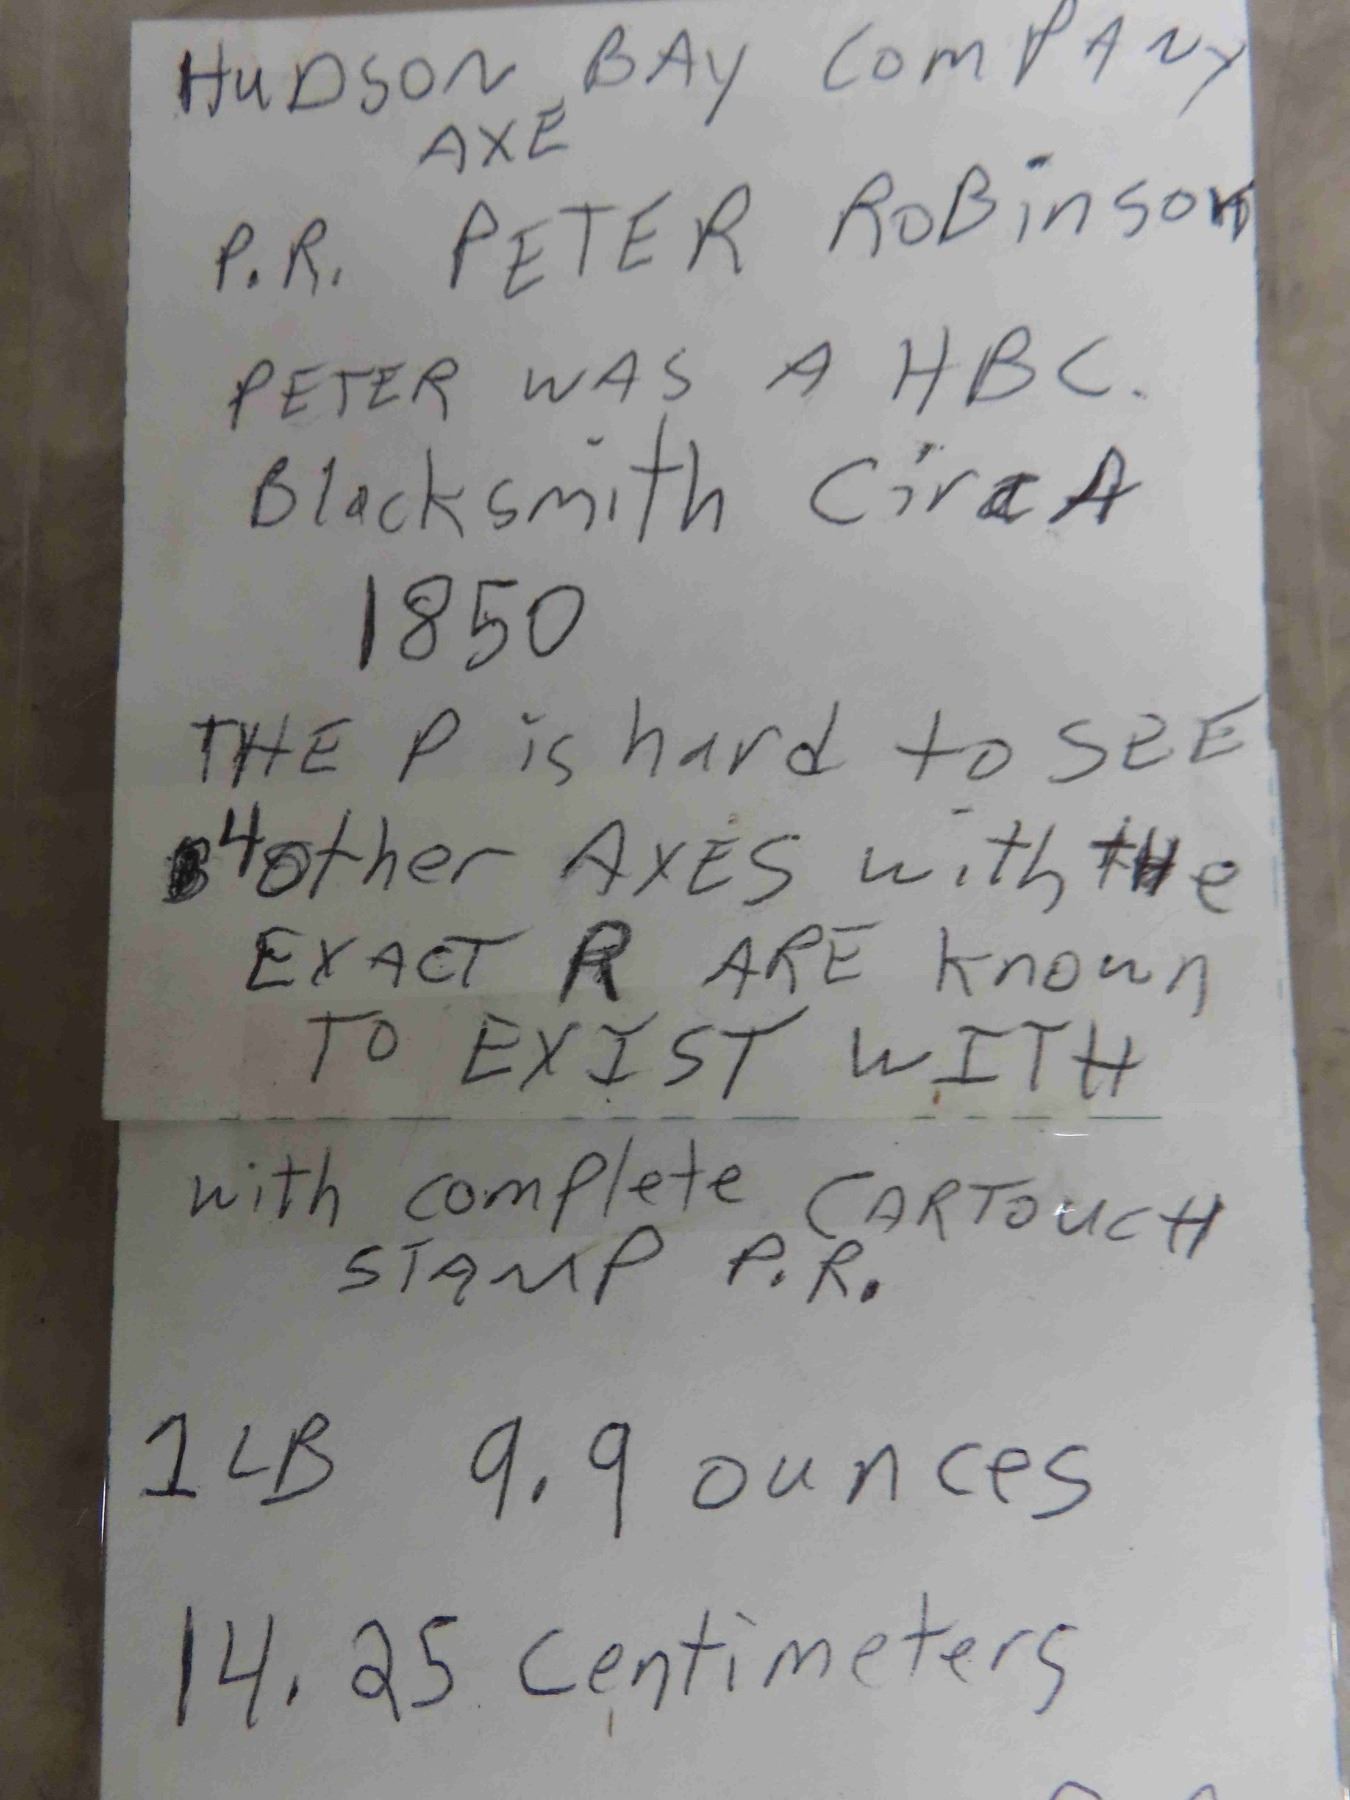 HUDSON BAY COMPANY
AXE
P.R. PETER ROBINSON
PETER WAS A HBC.
Blacksmith CircA
1850
THE P is hard to SEE
4 other AXES with the
EXACT R ARE known
TO EXIST WITH
with complete CARTOUCH
STAMP P.R.
1 LB 9.9 ounces
14.25 centimeters